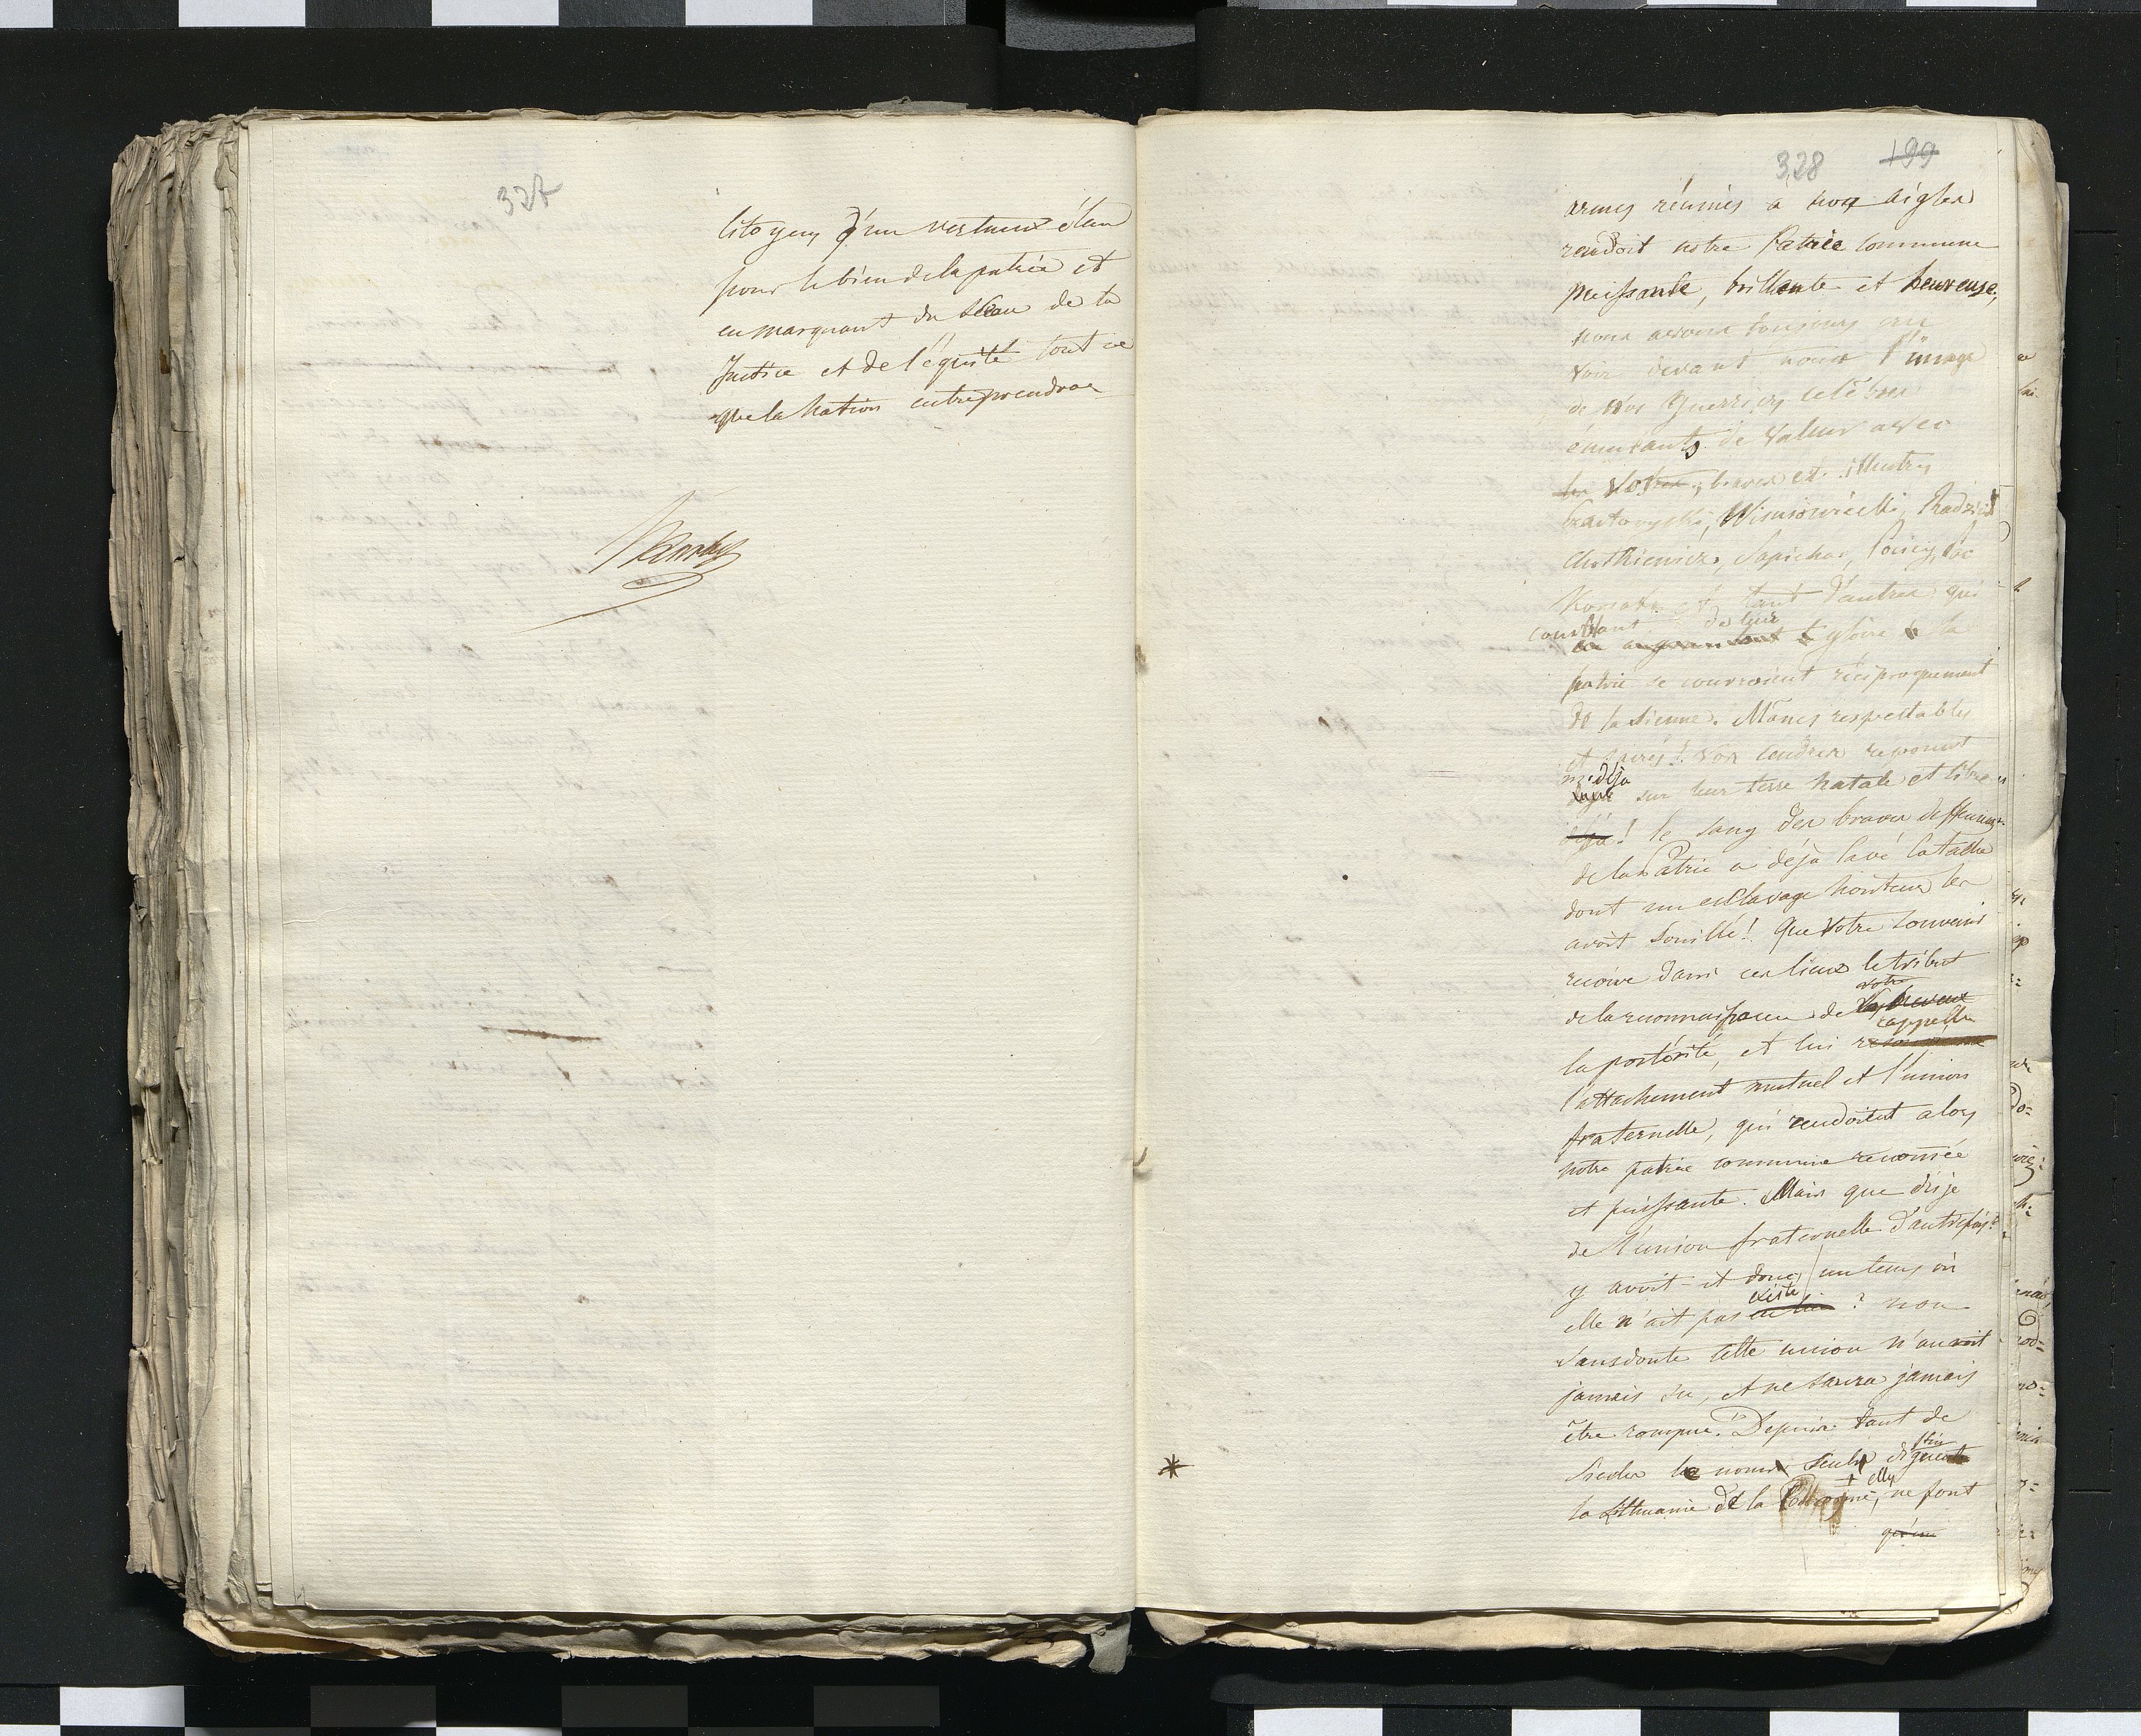 327
Citoyens d'un vertueux élan
pour le bien de la patrie et
en marquant du sceau de la
Justice et de l'équité tout ce
que la Nation entreprendra
328 199
armes réunies à nos aigles
rendoit notre Patrie commune
puissante, brillante et heureuse,
nous avons toujours cru
voir devant nous l'image
de nos Guerriers célèbres
émulants de valeur avec
les Vôtres, braves et illustres
Czartoryski, Wisniowiecki, Radziwil
Chotkiewicz, Sapiehas, Pac
et tant d'autres qui
couvrant de leur
en augmentant gloire la
patrie se couvroient réciproquement
de la sienne. Manes respectables
et sacrés! Vos cendres reposent
déja
sur leur terre natale et libre
déja! le sang des braves deffenseurs
de la Patrie a déja lavé la tache
dont un esclavage honteux les
avoit souillé! Que votre souvenir
recoive dans ces lieux le tribut
votre
de la reconnaissance de
rappelle
la postérité, et lui
l'attachement mutuel et l'union
fraternelle, qui rendoient alors
notre patrie commune renomée
et puissante. Mais que dis je
de l'union fraternelle d'autrefois?
y avoit-il donc un tems où
existé
elle n'ait pas ? non
sans doute cette union n'auroit
jamais su, et ne saura jamais
être rompue. Depuis tant de
Siecles le nom seul
elles
la Lithuanie de la Pologne, ne font
qu'une